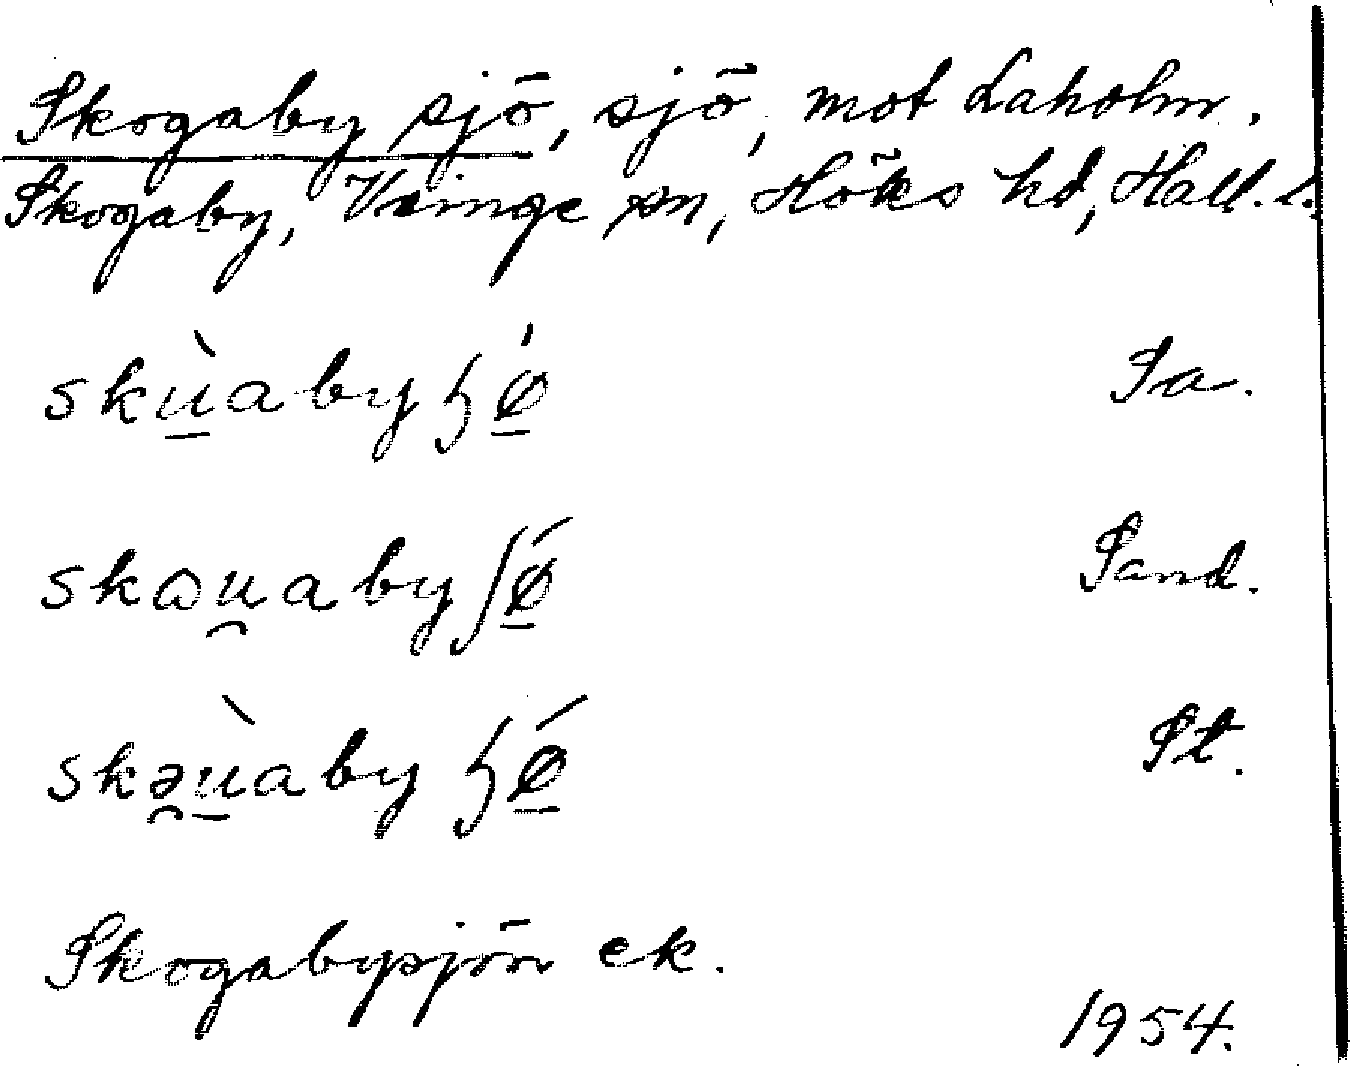 Skogaby sjö, sjö, mot Laholm.
Skogaby, Veinge sn, Höks hd, Hall. l.
skùaby ɧǿ Sa.
skɷu̯aby ʃǿ Sand.
skə̯ùaby ɧǿ St.
Skogabysjön ek.
1954.